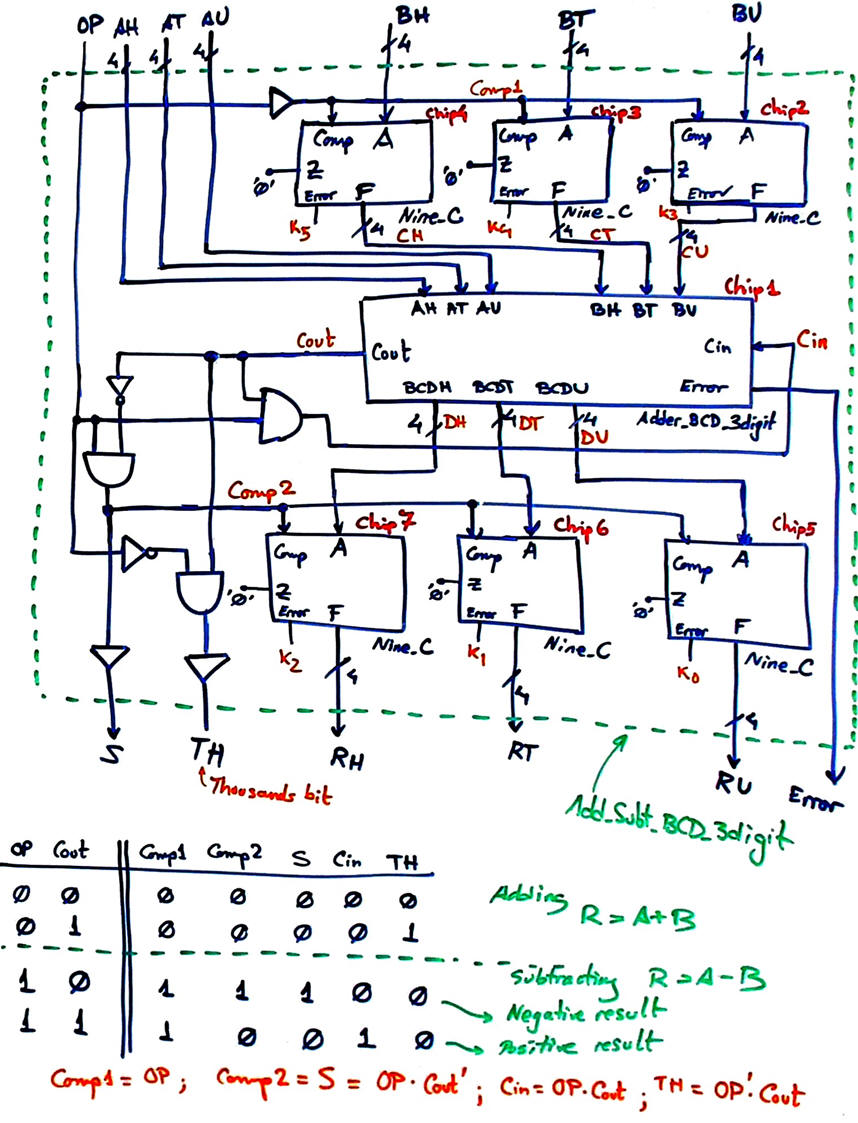 OP AH AT AU BH BT BU
4 4 4 4 4 4
Comp1
Chip4 Chip3 Chip2
Comp A Comp A Comp A
'0' Z '0' Z '0' Z
Error F Error F Error F
K5 Nine_C K4 Nine_C K3 Nine_C
4 CH 4 CT 4 CU
Chip1
AH AT AU BH BT BU
Cout Cout Cin Cin
BCDH BCDT BCDU Error
4 DH 4 DT 4 DU Adder_BCD_3digit
Comp2
Chip7 Chip6 Chip5
Comp A Comp A Comp A
'0' Z '0' Z '0' Z
Error F Error F Error F
K2 Nine_C K1 Nine_C K0 Nine_C
4 4 4
S TH RH RT RU Error
Thousands bit
Add_Subt_BCD_3digit
OP Cout Comp1 Comp2 S Cin TH
0 0 0 0 0 0 0
Adding R = A+B
0 1 0 0 0 0 1
Subtracting R = A-B
1 0 1 1 1 0 0
Negative result
1 1 1 0 0 1 0
Positive result
Comp1 = OP ; Comp2 = S = OP·Cout' ; Cin = OP·Cout ; TH = OP'·Cout